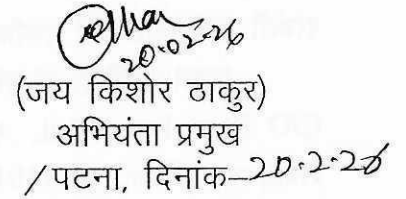 20.02.26
(जय किशोर ठाकुर)
अभियंता प्रमुख
/पटना, दिनांक–20.2.26